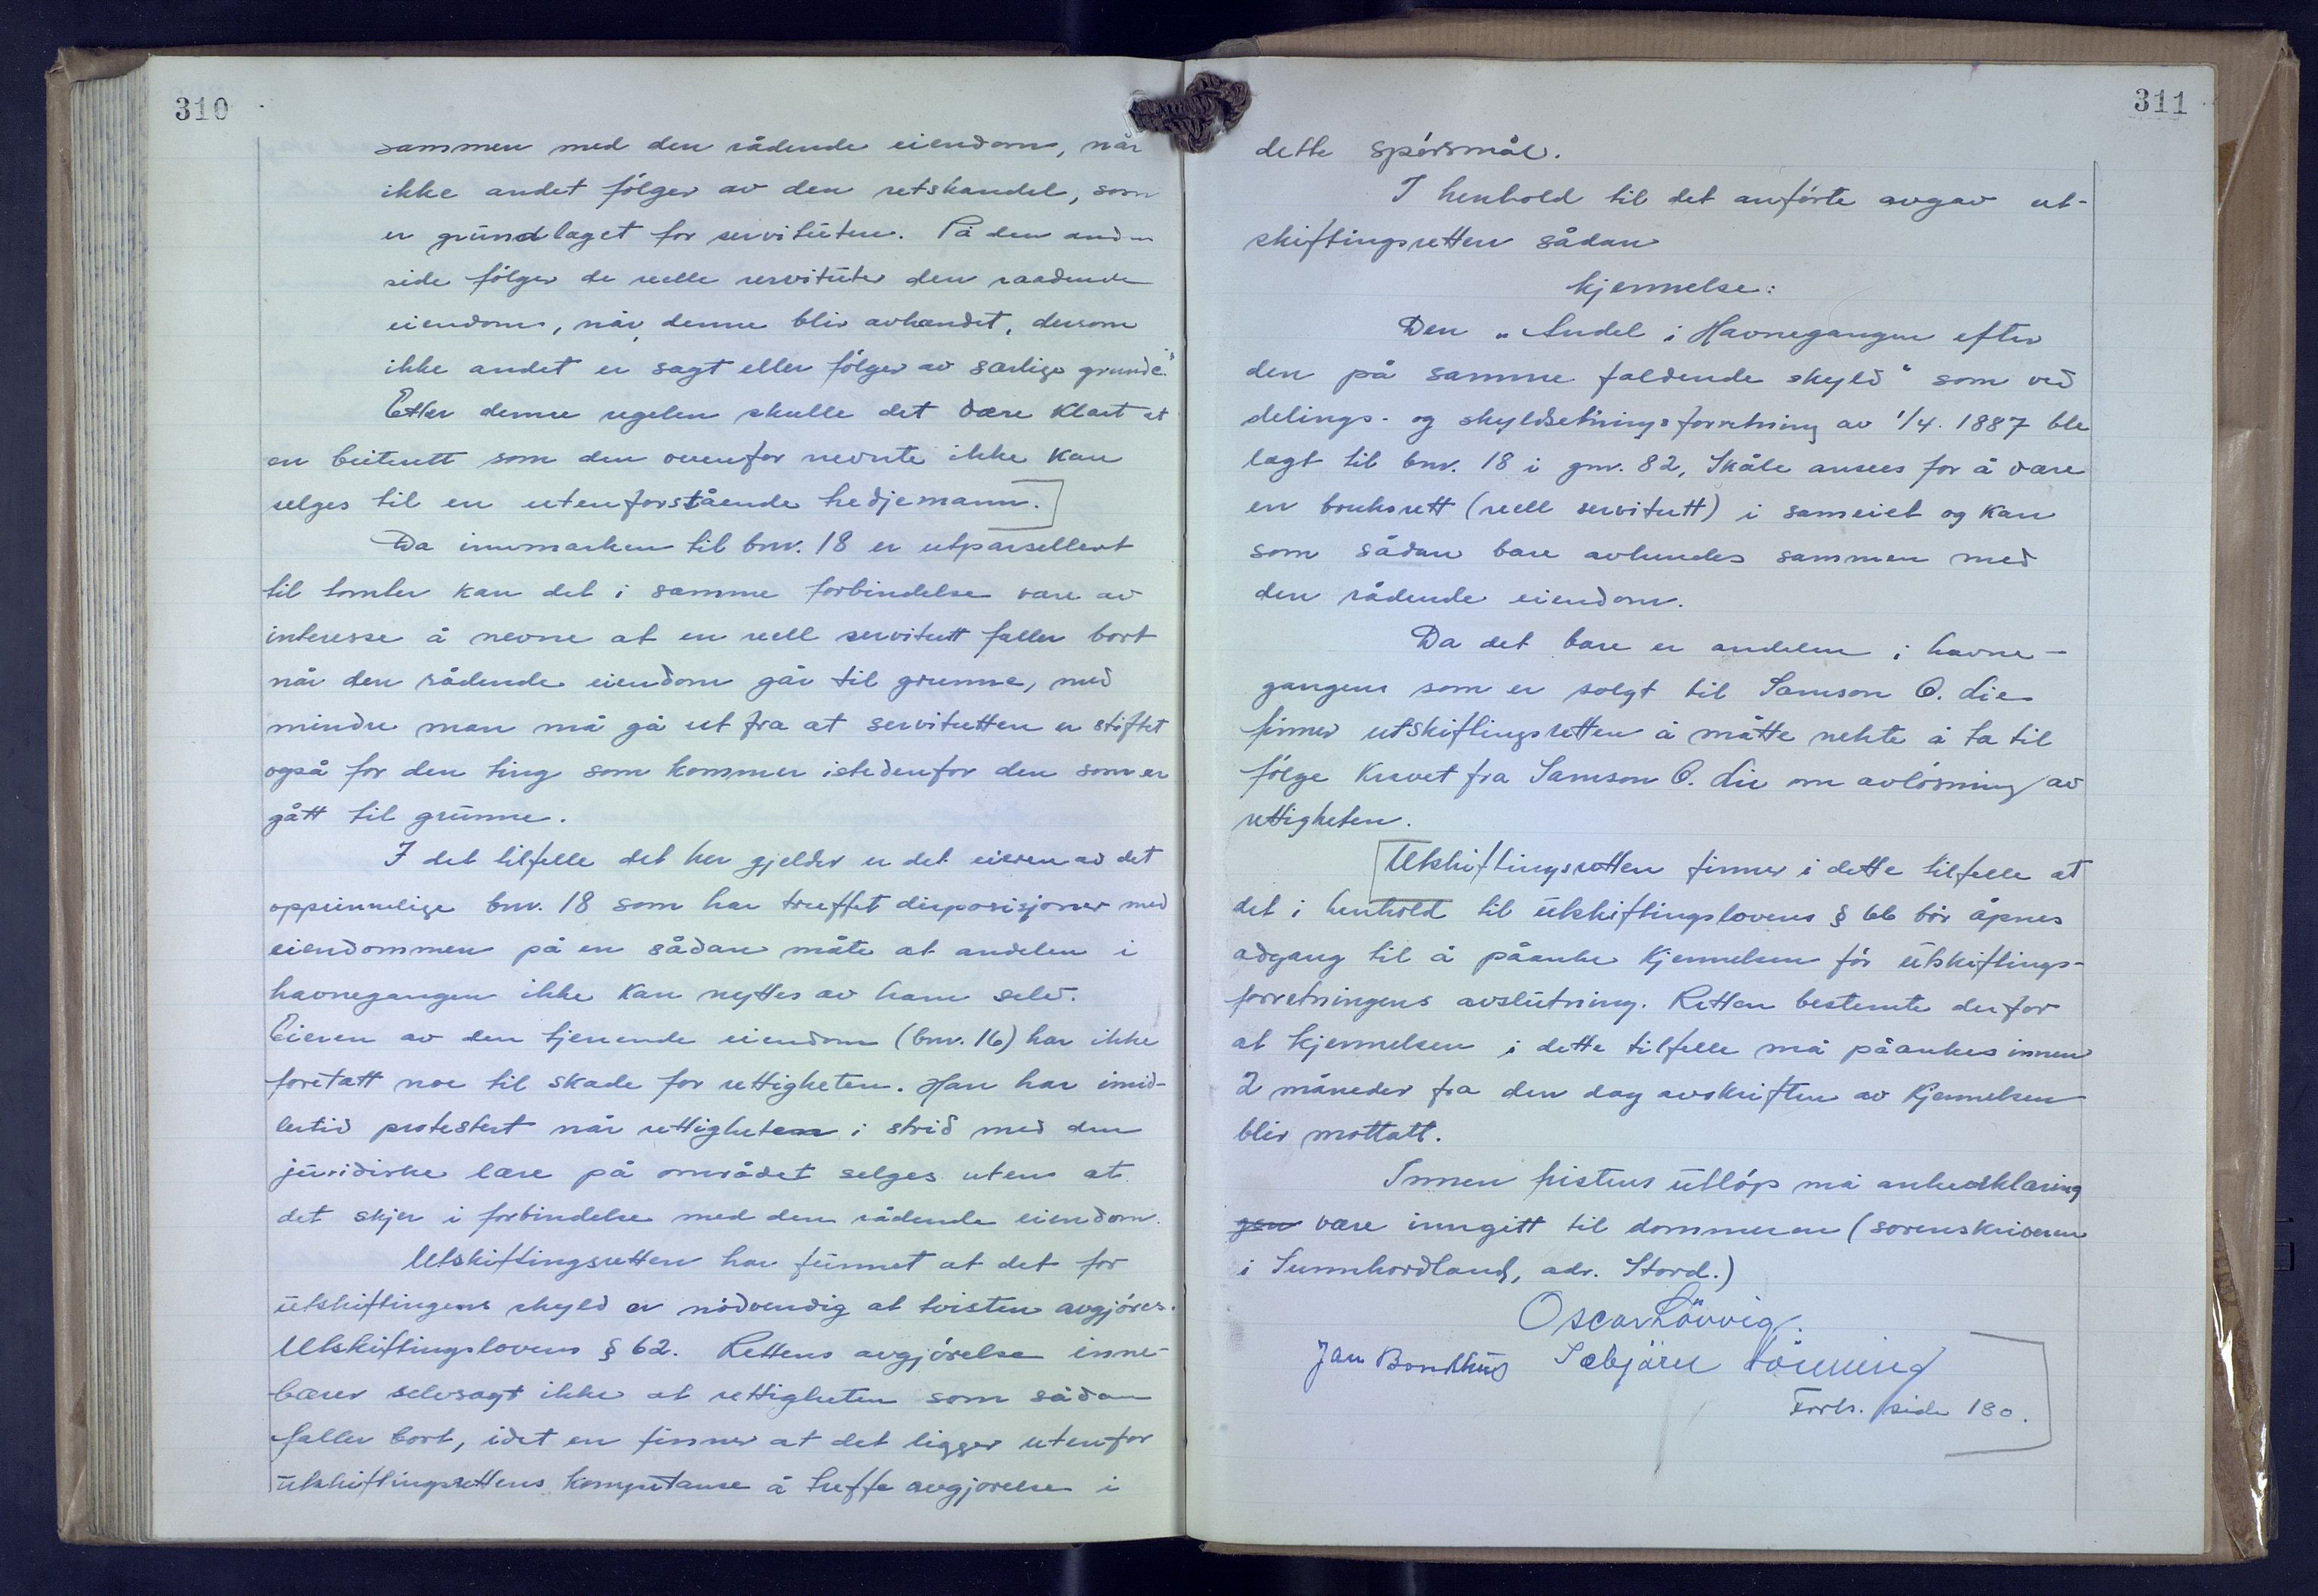 310
sammen med den rådende eiendom, når
ikke andet følger av den retshandel, som
er grundlaget for servituten. På den anden
side følger de reelle servituter den raadende
eiendom, når denne blir avhændet, dersom
ikke andet er sagt eller følger av særlige grunde."
Etter denne regelen skulle det være klart at
en beiterett som den ovenfor nevnte ikke kan
selges til en utenforstående tredjemann.
Da innmarken til bnr. 18 er utparsellert
til tomter kan det i samme forbindelse være av
interesse å nevne at en reell servitutt faller bort
når den rådende eiendom går til grunne, med
mindre man må gå ut fra at servitutten er stiftet
også for den ting som kommer istedenfor den som er
gått til grunne.
I det tilfelle det her gjelder er det eieren av det
opprinnelige bnr. 18 som har truffet disposisjoner med
eiendommen på en sådan måte at andelen i
havnegangen ikke kan nyttes av ham selv.
Eieren av den tjenende eiendom (bnr. 16) har ikke
foretatt noe til skade for rettigheten. Han har imid-
lertid protestert når rettigheten i strid med den
juridiske lære på området selges uten at
det skjer i forbindelse med den rådende eiendom.
Utskiftingsretten har funnet at det for
utskiftingens skyld er nødvendig at tvisten avgjøres.
Utskiftingslovens § 62. Rettens avgjørelse inne-
bærer selvsagt ikke at rettigheten som sådan
faller bort, idet en finner at det ligger utenfor
utskiftingsrettens kompetanse å treffe avgjørelse i
311
dette spørsmål.
I henhold til det anførte avgav ut-
skiftingsretten sådan
kjennelse:
Den „Andel i Havnegangen efter
den på samme faldende skyld" som ved
delings- og skyldsetningsforretning av 1/4. 1887 ble
lagt til bnr. 18 i gnr. 82, Skåle ansees for å være
en bruksrett (reell servitutt) i sameiet og kan
som sådan bare avhendes sammen med
den rådende eiendom.
Da det bare er andelen i havne-
gangen som er solgt til Samson O. Lie
finner utskiftingsretten å måtte nekte å ta til
følge kravet fra Samson O. Lie om avløsning av
rettigheten.
Utskiftingsretten finner i dette tilfelle at
det i henhold til utskiftingslovens § 66 bør åpnes
adgang til å påanke kjennelsen før utskiftings-
forretningens avslutning. Retten bestemte derfor
at kjennelsen i dette tilfelle må påankes innen
2 måneder fra den dag avskriften av kjennelsen
blir mottatt.
Innen fristens utløp må ankeerklæring
gen være inngitt til dommeren (sorenskriveren
i Sunnhordland, adr. Stord.)
Oscar Lövvig.
Jan Bondhus Sebjörn Tönning
Forts. side 180.